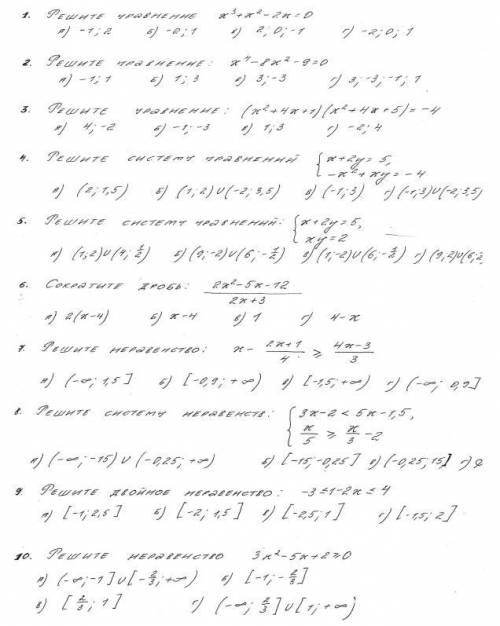 1. Решите уравнение x³+x²-2x=0
а) -1; 2 б) -0; 1 в) 2; 0; -1 г) -2; 0; 1
2. Решите уравнение: x⁴-8x²-9=0
а) -1; 1 б) 1; 3 в) 3; -3 г) 3; -3; -1; 1
3. Решите уравнение: (x²+4x+1)(x²+4x+5)=-4
а) 4; -2 б) -1; -3 в) 1; 3 г) -2; 4
4. Решите систему уравнений { x+2y=5,
-x²+xy=-4
а) (2; 1,5) б) (1; 2)∪(-2; 3,5) в) (-1; 3) г) (-1; 3)∪(-2; 3,5)
5. Решите систему уравнений: { x+2y=5,
xy=2
а) (1; 2)∪(4; 1/2) б) (9; -2)∪(6; -1/2) в) (1; -2)∪(6; -1/2) г) (9; 2)∪(6; 2
6. Сократите дробь: (2x²-5x-12)/(2x+3)
а) 2(x-4) б) x-4 в) 1 г) 4-x
7. Решите неравенство: x - (2x+1)/4 ⩾ (4x-3)/3
а) (-∞; 1,5] б) [-0,9; +∞) в) [-1,5; +∞) г) (-∞; 0,9]
8. Решите систему неравенств: { 3x-2<5x-1,5,
x/5 ⩾ x/3 - 2
а) (-∞; -15)∪(-0,25; +∞) б) [-15; -0,25] в) (-0,25; 15] г)
9. Решите двойное неравенство: -3≤1-2x≤4
а) [-1; 2,5] б) [-2; 1,5] в) [-2,5; 1] г) [-1,5; 2]
10. Решите неравенство 3x²-5x+2⩾0
а) (-∞; -1]∪[-2/3; +∞) б) [-1; -2/3]
в) [2/3; 1] г) (-∞; 2/3]∪[1; +∞)